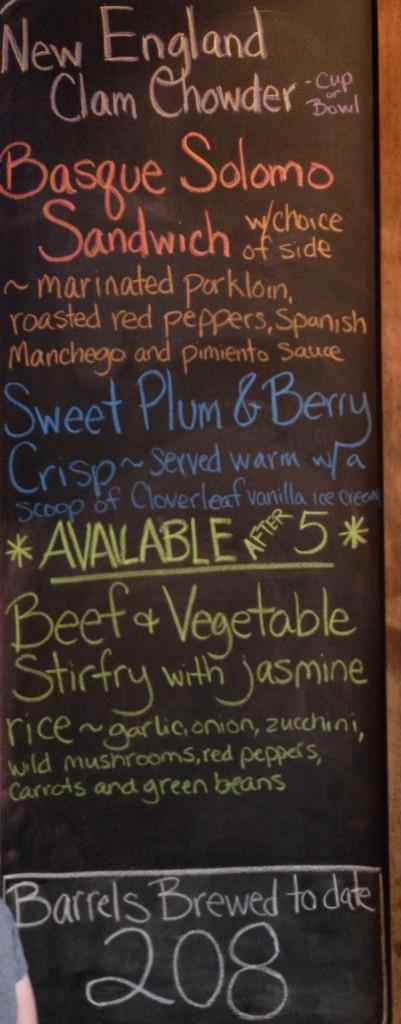 New England
Clam Chowder - Cup
or
Bowl
Basque Solomo
Sandwich w/choice
of side
~ marinated porkloin,
roasted red peppers, Spanish
Manchego and pimiento sauce
Sweet Plum & Berry
Crisp ~ Served warm w/a
scoop of Cloverleaf vanilla ice cream
* AVAILABLE AFTER 5 *
Beef & Vegetable
Stirfry with jasmine
rice ~ garlic, onion, zucchini,
wild mushrooms, red peppers,
carrots and green beans
Barrels Brewed to date
208